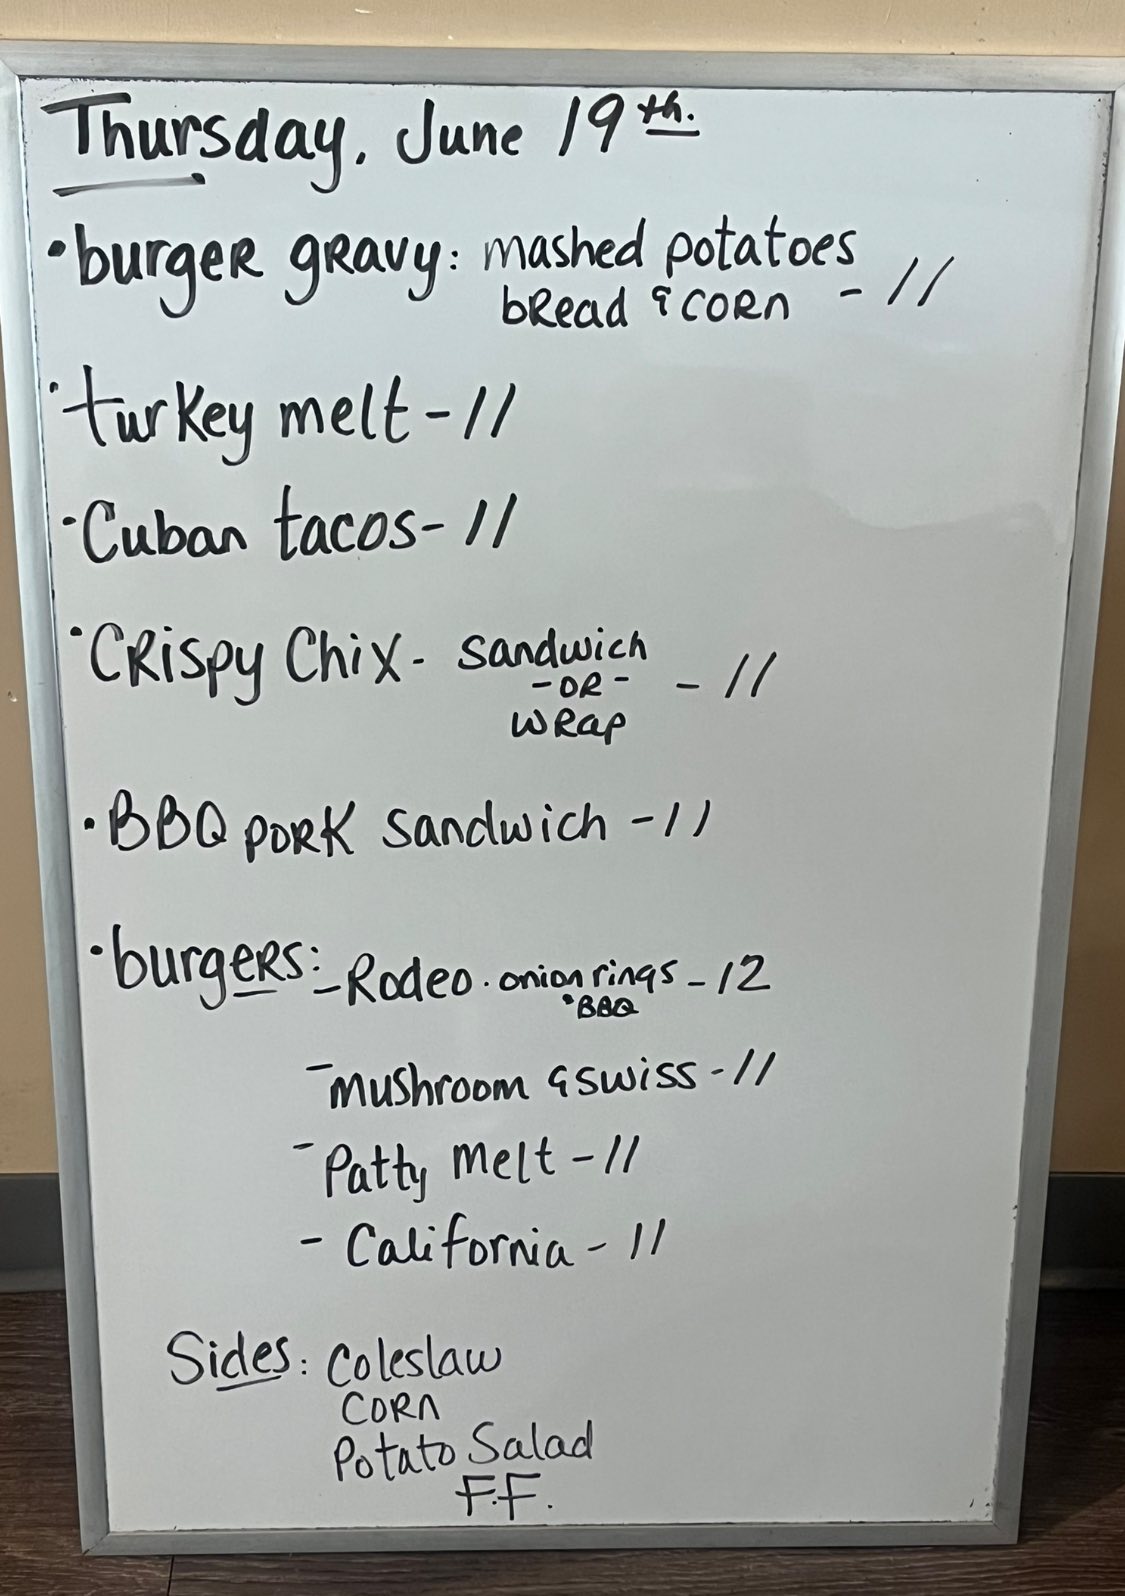 Thursday, June 19th.
• burger gravy: mashed potatoes
bread & corn - 11
• turkey melt - 11
• Cuban tacos - 11
• Crispy Chix - sandwich
- OR -
wrap - 11
• BBQ pork sandwich - 11
• burgers: - Rodeo • onion rings - 12
• BBQ
- mushroom & swiss - 11
- Patty melt - 11
- California - 11
Sides: Coleslaw
corn
Potato Salad
F.F.